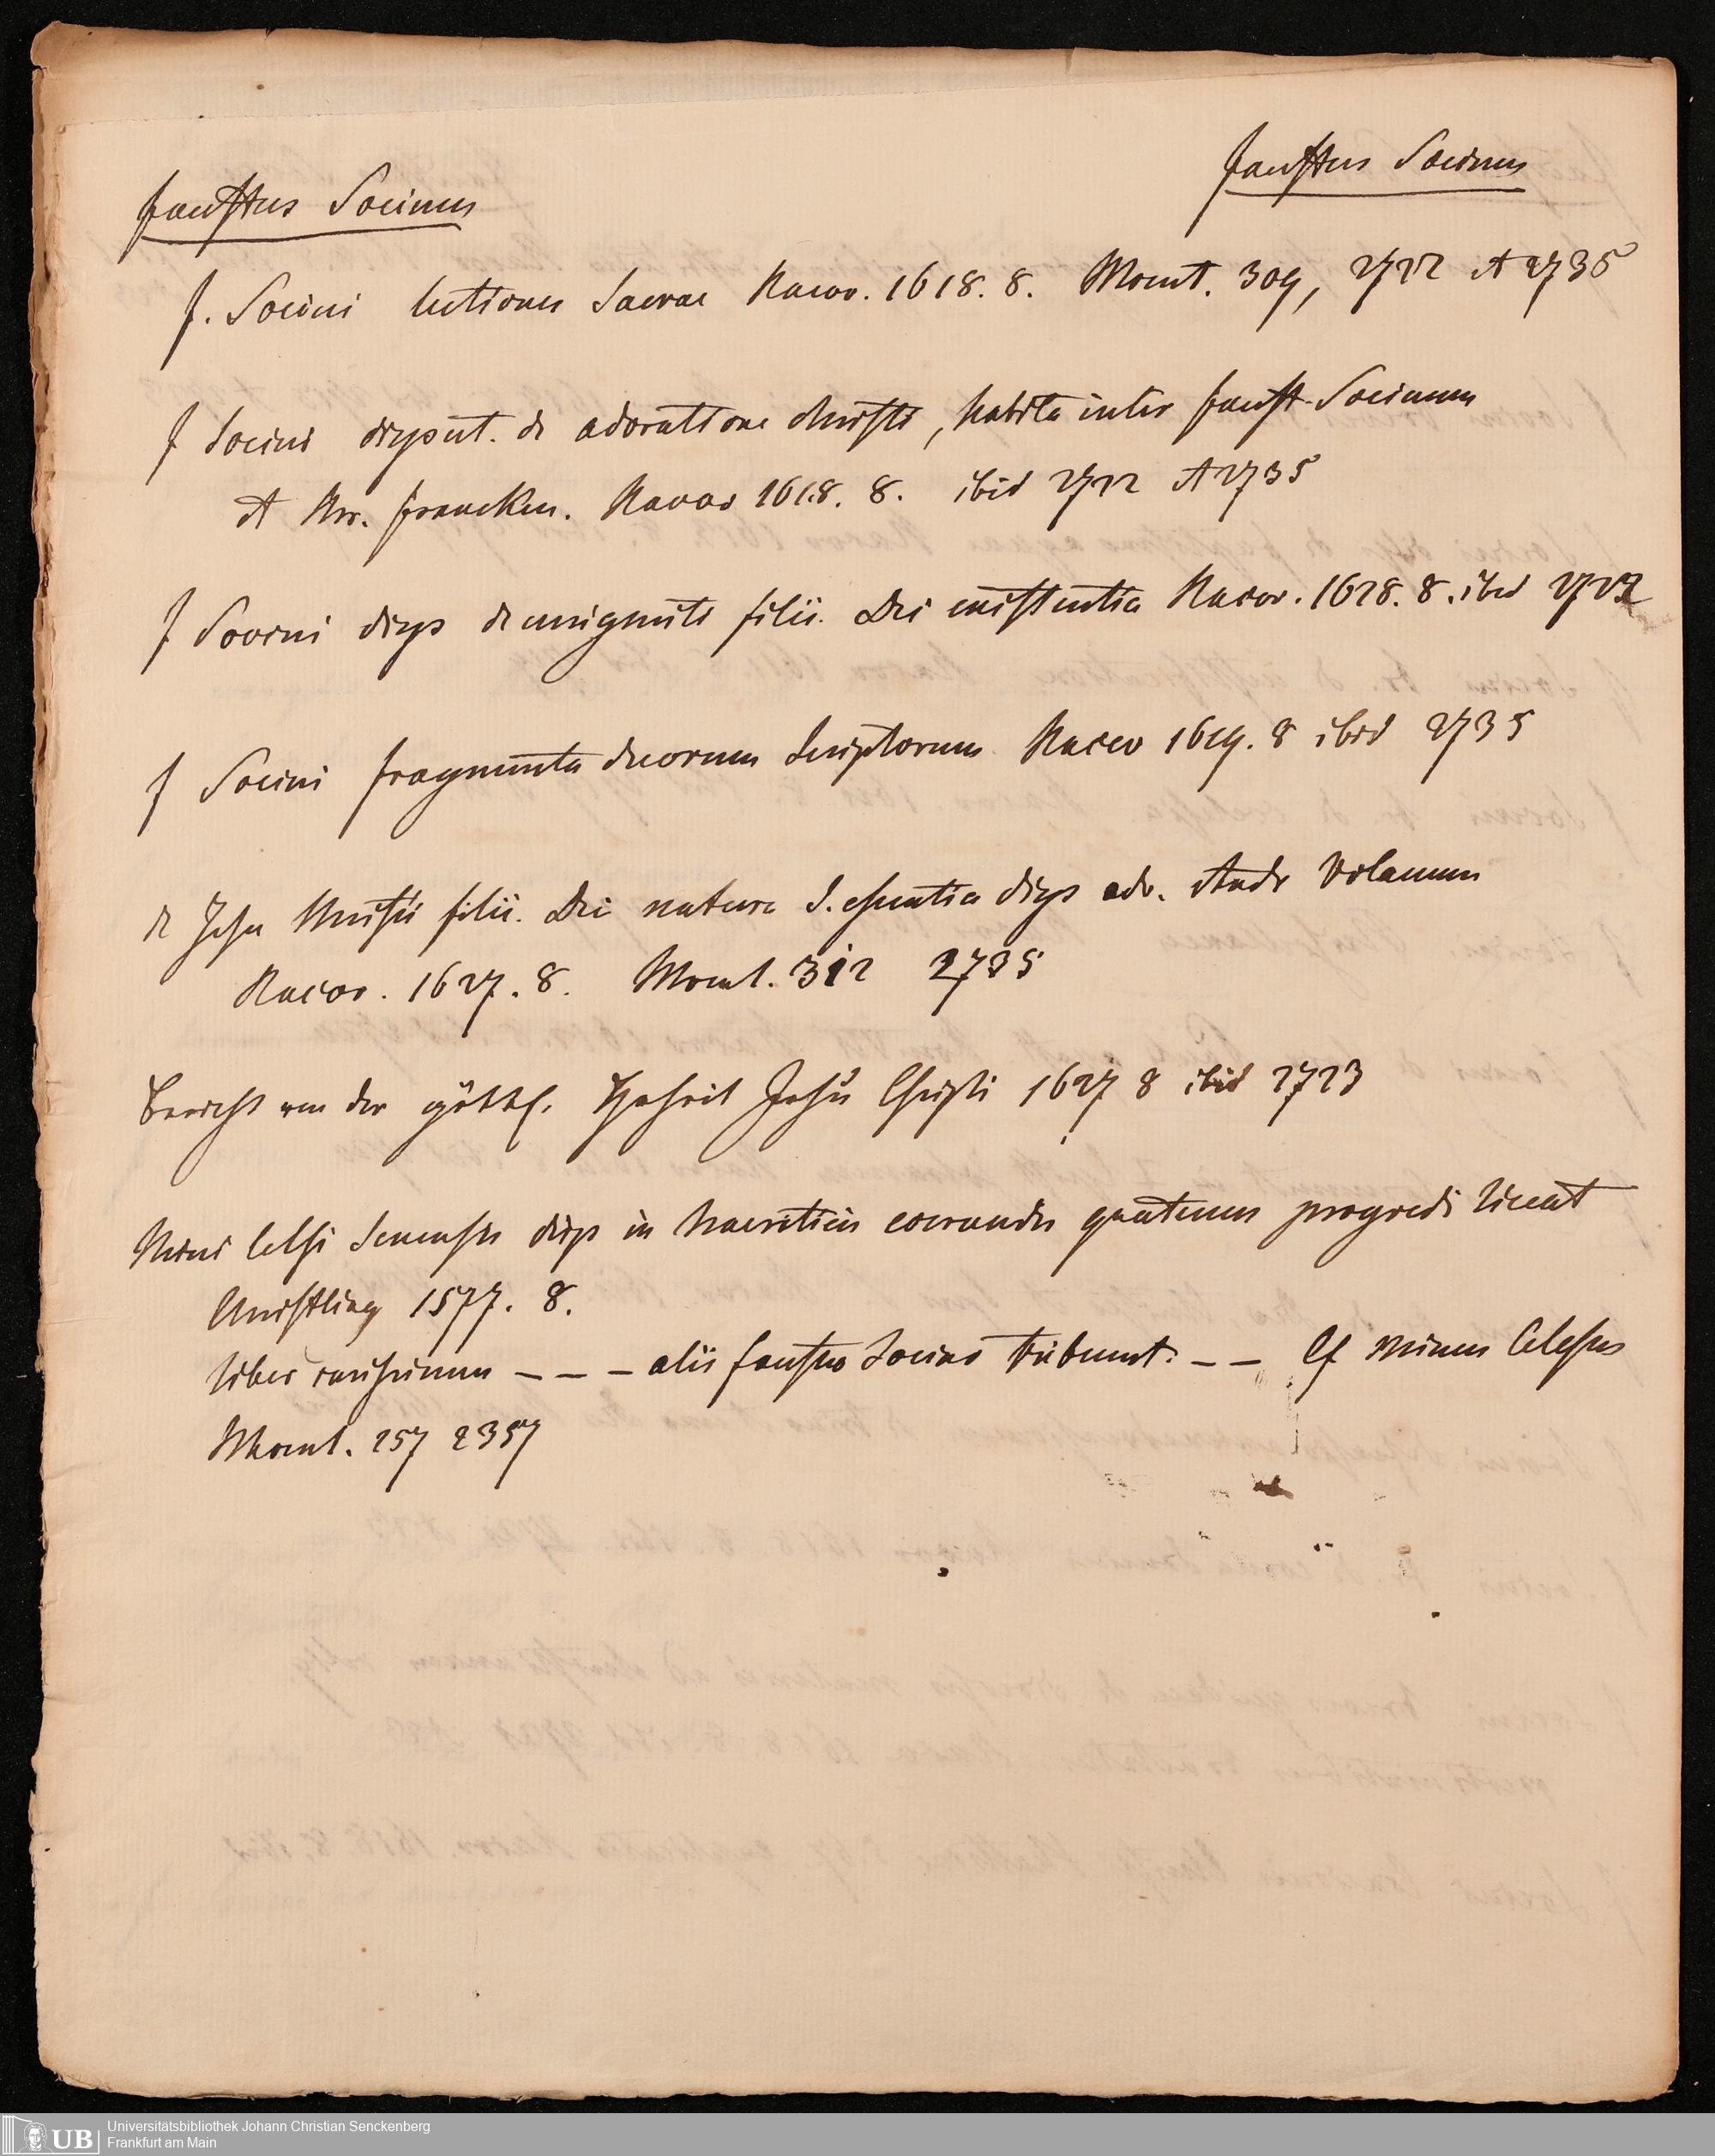 Faustus Socinus
Faustus Socinus
F. Socini lectiones sacrae Racov. 1618. 8. Mscnt. 309, 2722 et 2735
F Socini disput. de adoratione Christi, habita inter Faust. Socinum
et Chr. Francken. Racov 1618. 8. ibid 2722 et 2735
F Socini disp de unigeniti filii Dei existentia Racov. 1628. 8. ibid 2722
F Socini fragmenta duorum Scriptorum Racov 1619. 8 ibid 2735
de Jesu Christi filii Dei natura s. essentia disp adv. Andr Volanum
Racov. 1627. 8. 312 2735
Bericht von der göttl. Hoheit Jesu Christi 1627 8 ibid 2723
Mini Celsi Senensis disp in haereticis coercendis quatenus progredi liceat
Christling 1577. 8.
Liber rarissimus - - - alii Fausto Socino tribuunt. - - Cf Minus Celsus
257 2357
Universitätsbibliothek Johann Christian Senckenberg
Frankfurt am Main
UB